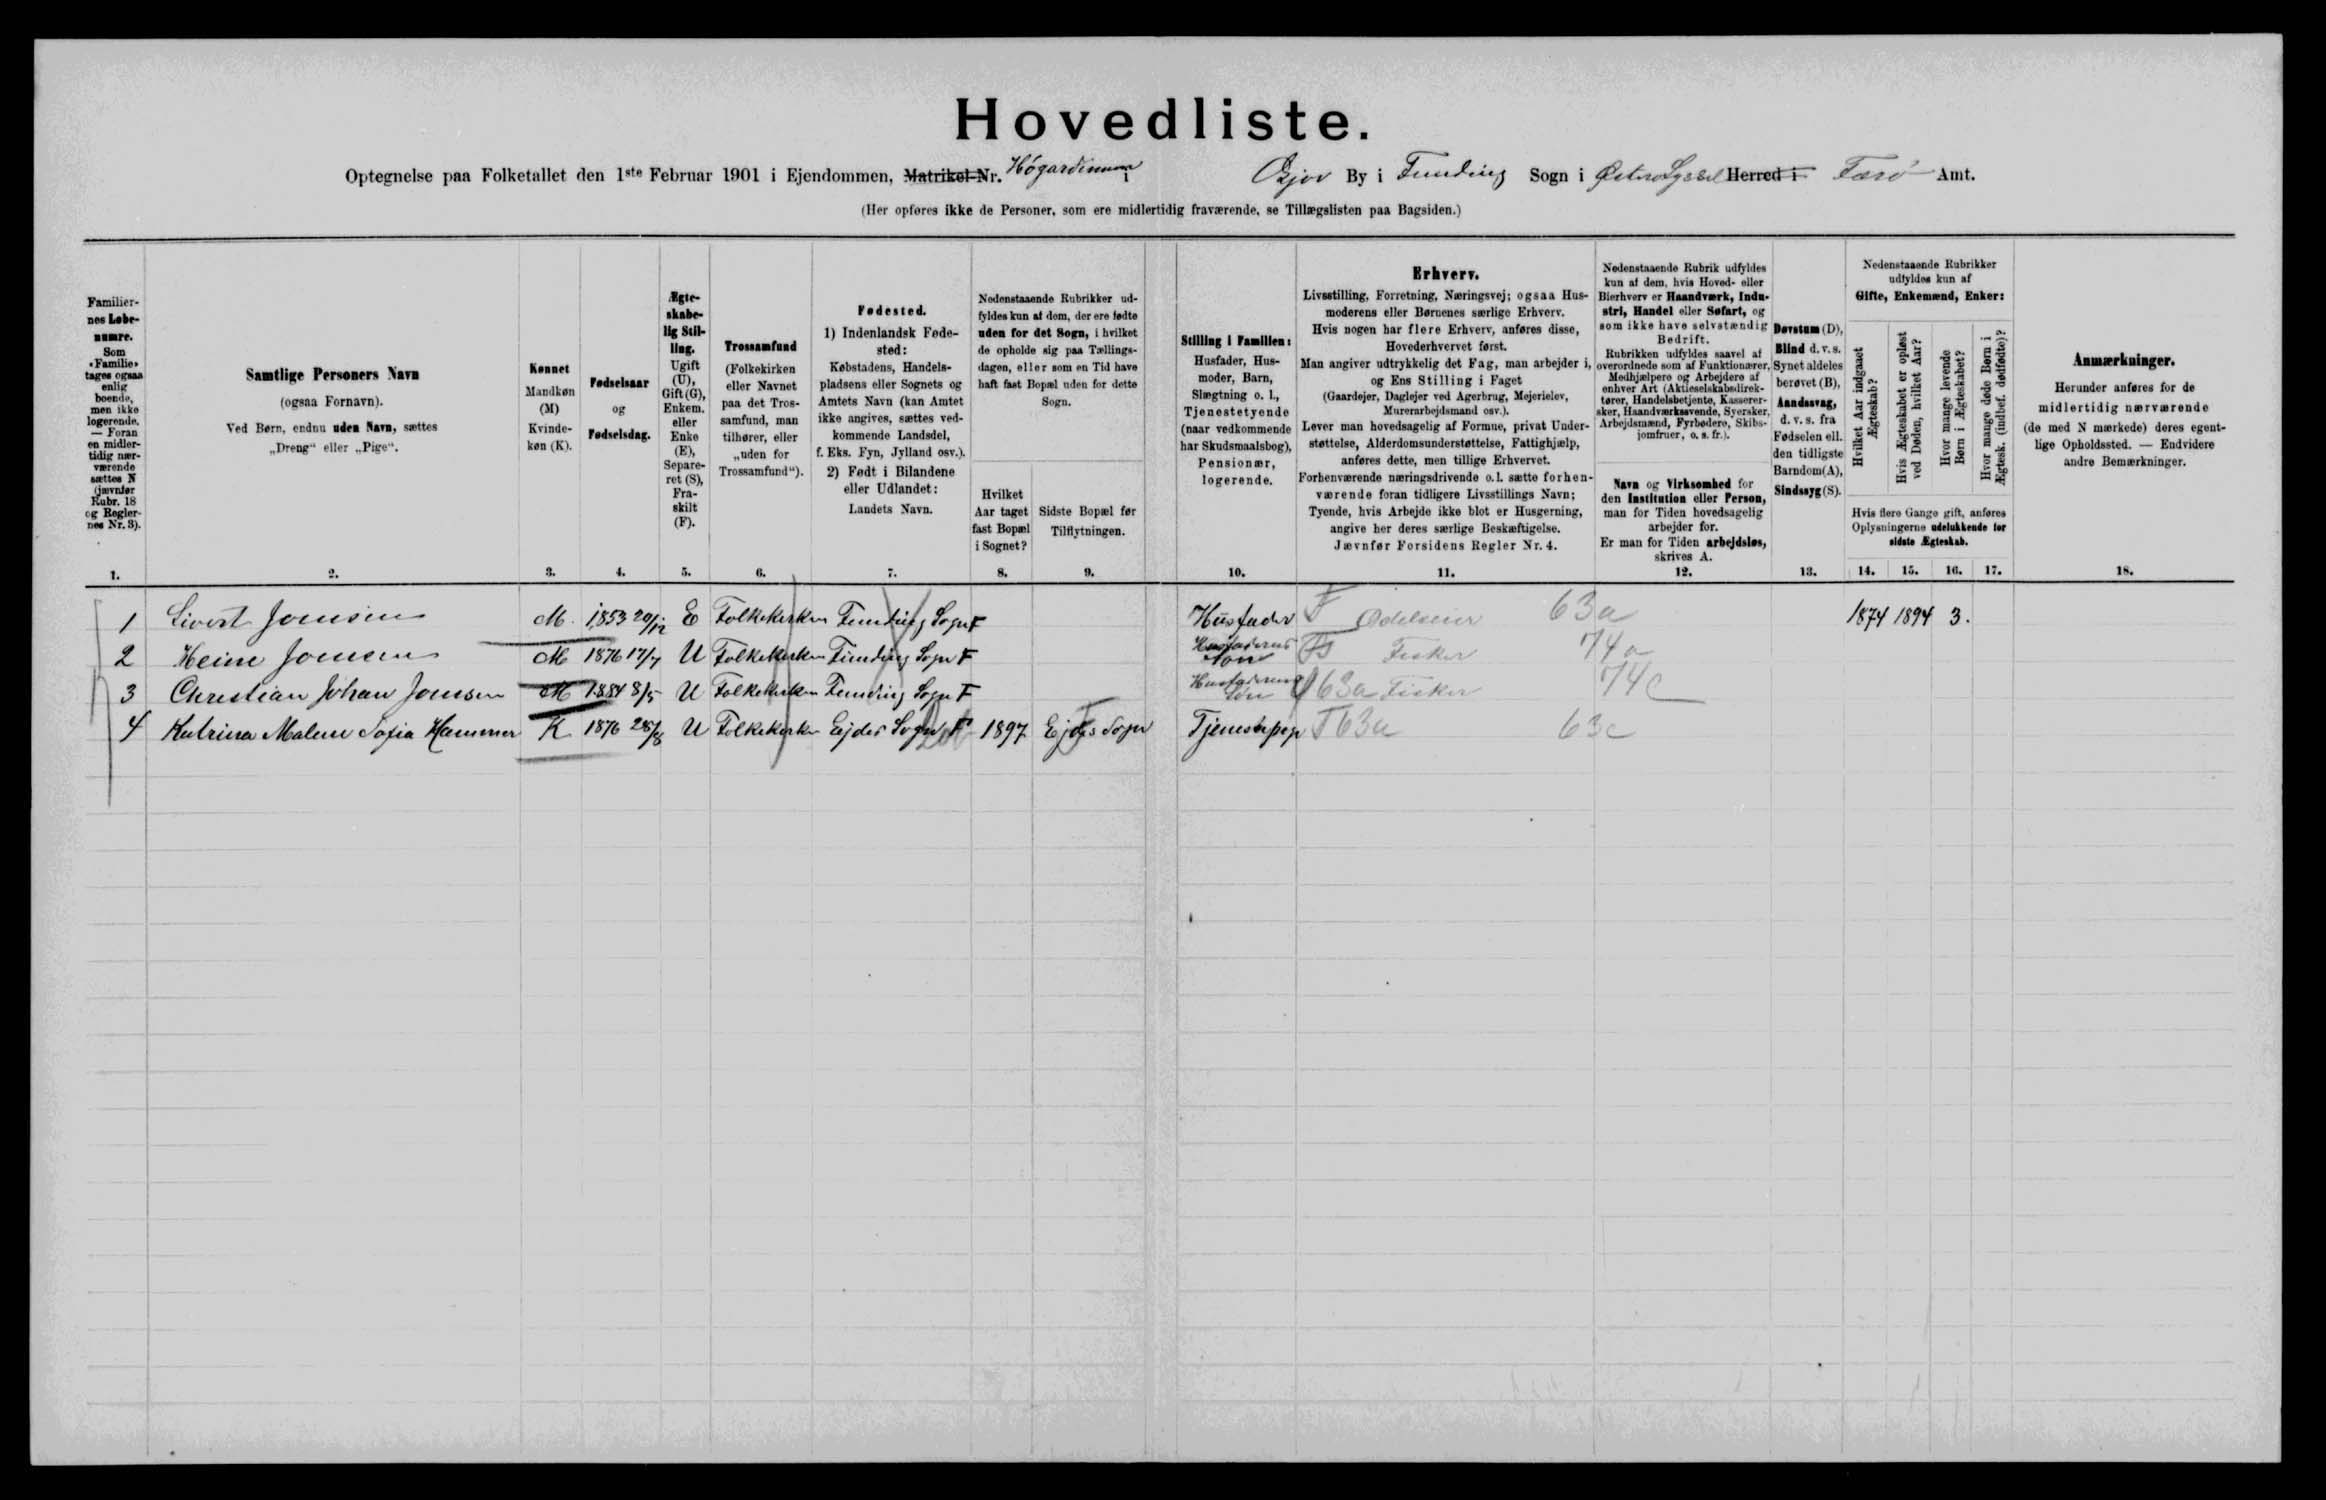 Hovedliste.
Optegnelse paa Folketallet den 1ste Februar 1901 i Ejendommen, Matrikel-Nr. Högardinum i Gjov By i Funding Sogn i Østerø Syssel Herred i Færø Amt.
(Her opføres ikke de Personer, som ere midlertidig fraværende, se Tillægslisten paa Bagsiden.)
Familiernes Løbenumre.
Som
«Familie»
tages ogsaa
enlig
boende,
men ikke
logerende.
— Foran
en midler-
tidig nær-
værende
sættes N
(jævnfør
Rubr. 18
og Regler-
nes Nr. 3).
1.
Samtlige Personers Navn
(ogsaa Fornavn).
Ved Børn, endnu uden Navn, sættes
„Dreng“ eller „Pige“.
2.
Kønnet
Mandkøn
(M)
Kvinde-
køn (K).
3.
Fødselsaar
og
Fødselsdag.
4.
Ægte-
skabe-
lig Stil-
ling.
Ugift
(U),
Gift (G),
Enkem.
eller
Enke
(E),
Separe-
ret (S),
Fra-
skilt
(F).
5.
Trossamfund
(Folkekirken
eller Navnet
paa det Tros-
samfund, man
tilhører, eller
„uden for
Trossamfund“).
6.
Fødested.
1) IndenlandskFøde-
sted:
Købstadens, Handels-
pladsens eller Sognets og
Amtets Navn (kan Amtet
ikke angives, sættes ved-
kommende Landsdel,
f. Eks. Fyn, Jylland osv.).
2) Født i Bilandene
eller Udlandet:
Landets Navn.
7.
Nedenstaaende Rubrikker ud-
fyldes kun af dem, der ere fødte
uden for det Sogn, i hvilket
de opholde sig paa Tællings-
dagen, eller som en Tid have
haft fast Bopæl uden for dette
Sogn.
Hvilket
Aar taget
fast Bopæl
i Sognet?
8.
Sidste Bopæl før
Tilflytningen.
9.
Stilling i Familien:
Husfader, Hus-
moder, Barn,
Slægtning o. l.,
Tjenestetyende
(naar vedkommende
har Skudsmaalsbog),
Pensionær,
logerende.
10.
Erhverv.
Livsstilling, Forretning, Næringsvej; ogsaa Hus-
moderens eller Børnenes særlige Erhverv.
Hvis nogen har flere Erhverv, anføres disse,
Hovederhvervet først.
Man angiver udtrykkelig det Fag, man arbejder i,
og Ens Stilling i Faget
(Gaardejer, Daglejer ved Agerbrug, Mejerielev,
Murerarbejdsmand osv.).
Lever man hovedsagelig af Formue, privat Under-
støttelse, Alderdomsunderstøttelse, Fattighjælp,
anføres dette, men tillige Erhvervet.
Forhenværende næringsdrivende o. l. sætte forhen-
værende foran tidligere Livsstillings Navn;
Tyende, hvis Arbejde ikke blot er Husgerning,
angive her deres særlige Beskæftigelse.
Jævnfør Forsidens Regler Nr. 4.
11.
Nedenstaaende Rubrik udfyldes
kun af dem, hvis Hoved- eller
Bierhverv er Haandværk, Indu-
stri, Handel eller Søfart, og
som ikke have selvstændig
Bedrift.
Rubrikken udfyldes saavel af
overordnede som af Funktionærer,
Medhjælpere og Arbejdere af
enhver Art (Aktieselskabsdirek-
tører, Handelsbetjente, Kasserer-
sker, Haandværkssvende, Syersker,
Arbejdsmænd, Fyrbødere, Skibs-
jomfruer, o. s. fr.).
Navn og Virksomhed for
den Institution eller Person,
man for Tiden hovedsagelig
arbejder for.
Er man for Tiden arbejdsløs,
skrives A.
12.
Døvstum (D),
Blind d. v. s.
Synet aldeles
berøvet (B),
Aandssvag,
d. v. s. fra
Fødselen ell.
den tidligste
Barndom (A),
Sindssyg (S).
13.
Nedenstaaende Rubrikker
udfyldes kun af
Gifte, Enkemænd, Enker:
Hvilket Aar indgaaet
Ægteskab?
Hvis Ægteskabet er opløst
ved Døden, hvilket Aar?
Hvor mange levende
Børn i Ægteskabet?
Hvor mange døde Børn i
Ægtesk. (indbef. dødfødte)?
Hvis flere Gange gift, anføres
Oplysningerne udelukkende for
sidste Ægteskab.
14. 15. 16. 17.
Anmærkninger.
Herunder anføres for de
midlertidig nærværende
(de med N mærkede) deres egent-
lige Opholdssted. — Endvidere
andre Bemærkninger.
18.
1 Sivert Joensen M. 1853 20/12 E Folkekirken Funding Sogn F Husfader F Odelseier 63a 1874 1894 3.
2 Heine Joensen M 1876 17/7 U Folkekirken Funding Sogn F Husfaderens Søn Fisker 74a
3 Christian Johan Joensen M 1884 8/5 U Folkekirken Funding Sogn F Husfaderens Søn 63a Fisker 74c
4 Katrina Malene Sofia Hammer K 1876 28/8 U Folkekirken Ejdes Sogn F 1897 Ejdes Sogn Tjenestepige T 63a 63c